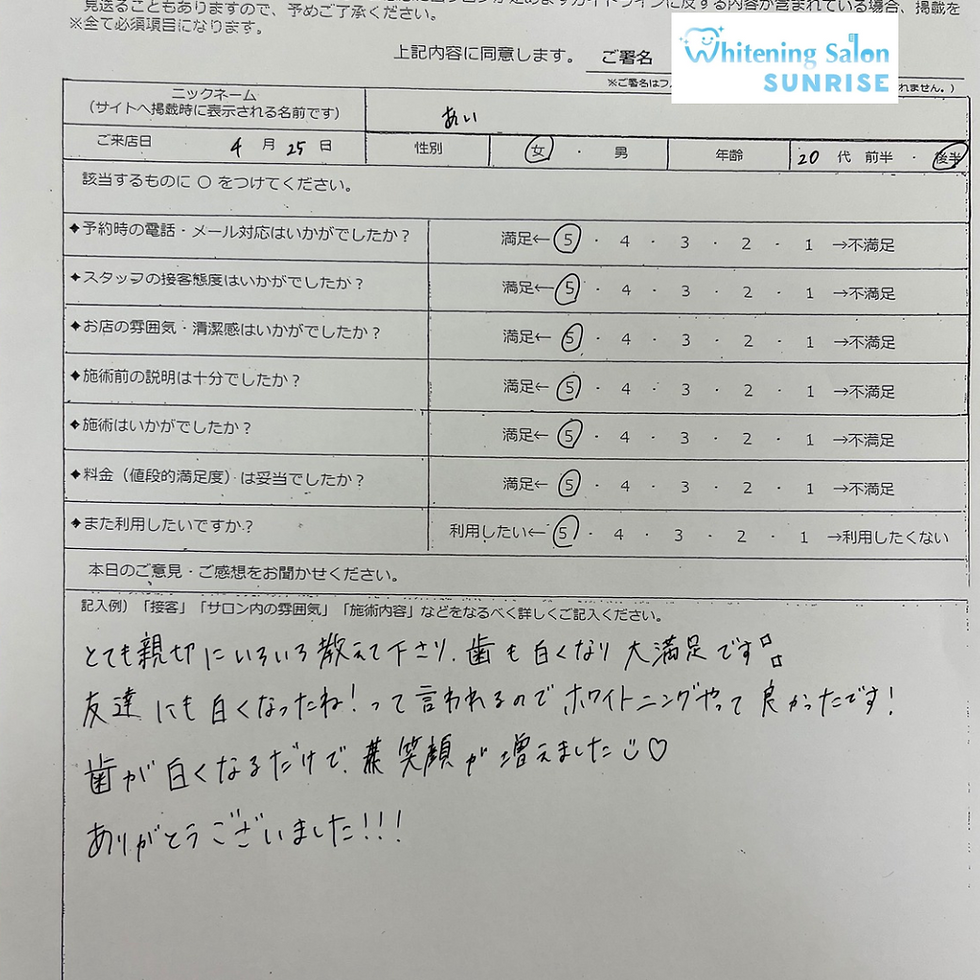 見送ることもありますので、予めご了承ください。
ガイドラインに反する内容が含まれている場合、掲載を
※全て必須項目になります。
上記内容に同意します。 ご署名
Whitening Salon
SUNRISE
※ご署名はフ
れません。)
ニックネーム
(サイトへ掲載時に表示される名前です)
あい
ご来店日 4 月 25 日 性別 女 ・ 男 年齢 20 代 前半 ・ 後半
該当するものに ○ をつけてください。
◆予約時の電話・メール対応はいかがでしたか? 満足← 5 ・ 4 ・ 3 ・ 2 ・ 1 →不満足
◆スタッフの接客態度はいかがでしたか? 満足← 5 ・ 4 ・ 3 ・ 2 ・ 1 →不満足
◆お店の雰囲気・清潔感はいかがでしたか? 満足← 5 ・ 4 ・ 3 ・ 2 ・ 1 →不満足
◆施術前の説明は十分でしたか? 満足← 5 ・ 4 ・ 3 ・ 2 ・ 1 →不満足
◆施術はいかがでしたか? 満足← 5 ・ 4 ・ 3 ・ 2 ・ 1 →不満足
◆料金(値段的満足度)は妥当でしたか? 満足← 5 ・ 4 ・ 3 ・ 2 ・ 1 →不満足
◆また利用したいですか? 利用したい← 5 ・ 4 ・ 3 ・ 2 ・ 1 →利用したくない
本日のご意見・ご感想をお聞かせください。
記入例)「接客」「サロン内の雰囲気」「施術内容」などをなるべく詳しくご記入ください。
とても親切にいろいろ教えて下さり、歯も白くなり大満足です
友達にも白くなったね!って言われるのでホワイトニングやって良かったです!
歯が白くなるだけで、笑顔が増えました♡
ありがとうございました!!!